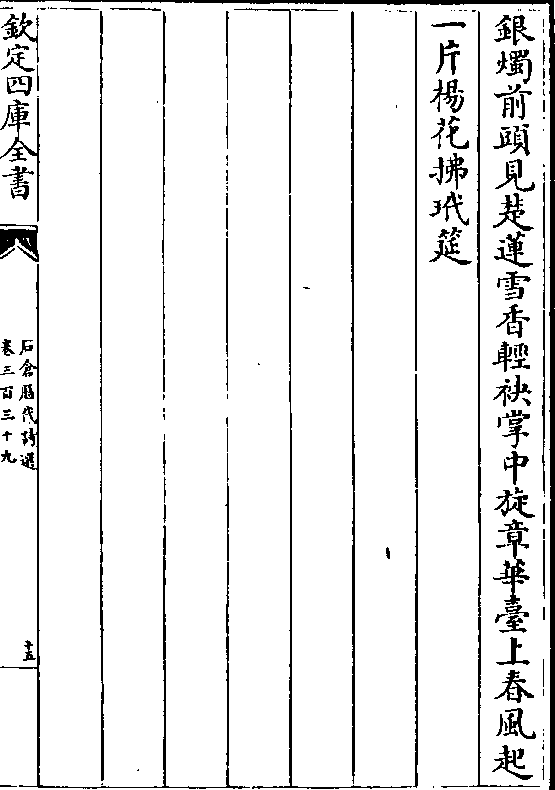 銀燭前頭見楚蓮雪香輕袂掌中旋章華臺上春風起
一片楊花拂玳筵
欽定四庫全書
石倉歷代詩選
卷三百三十九
十五